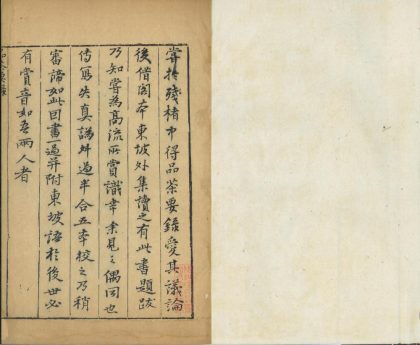 嘗於殘楮中得品茶要錄愛其議論
後借閣本東坡外集讀之有此書題跋
乃知嘗為高流所賞識幸余見之偶同也
傳寫失真譌舛過半合五本校之乃稍
審諦如此因書一過并附東坡語於後世必
有賞音如吾兩人者